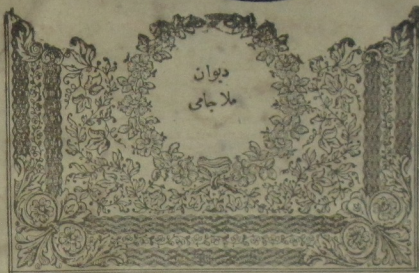 دیوان
ملا جامی